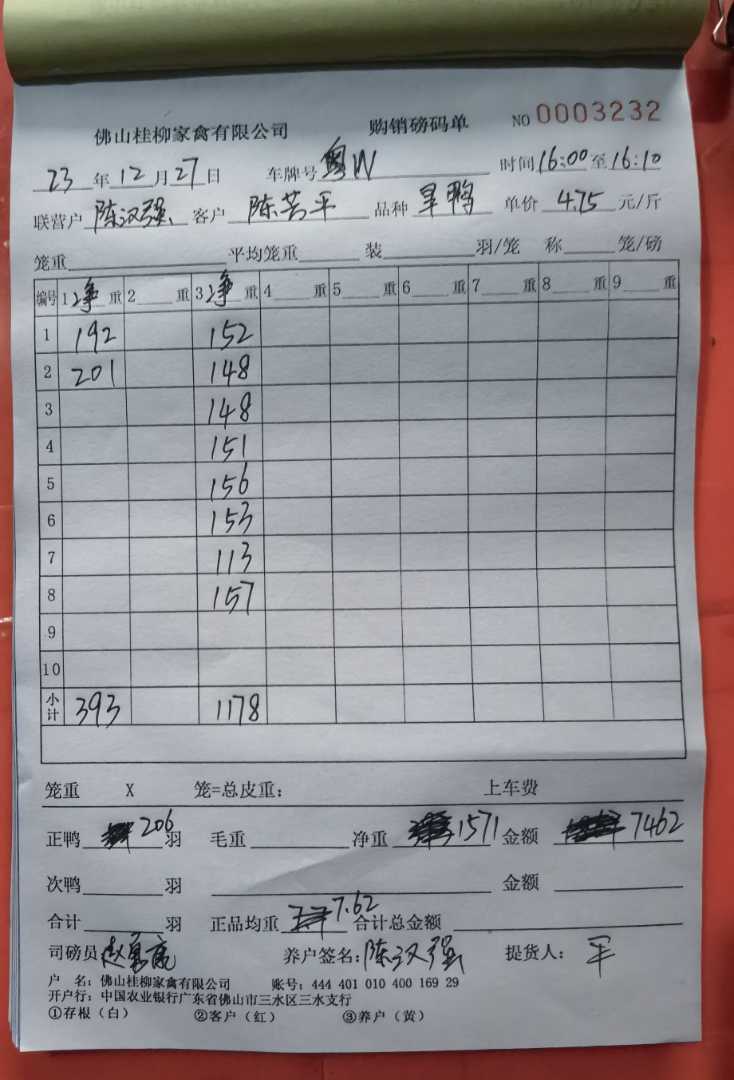 佛山桂柳家禽有限公司 购销磅码单 NO 0003232
23 年 12 月 27 日 车牌号 粤W 时间 16:00 至 16:10
联营户 陈汉强 客户 陈芸平 品种 旱鸭 单价 4.75 元/斤
笼重 平均笼重 装 羽/笼 称 笼/磅
编号 1 净 重 2 重 3 净 重 4 重 5 重 6 重 7 重 8 重 9 重
1 192 152
2 201 148
3 148
4 151
5 156
6 153
7 113
8 157
9
10
小计 393 1178
笼重 X 笼=总皮重: 上车费
正鸭 206 羽 毛重 净重 1571 金额 7462
次鸭 羽 金额
合计 羽 正品均重 7.62 合计总金额
司磅员 赵 养户签名: 陈汉强 提货人: 平
户 名: 佛山桂柳家禽有限公司 账号: 444 401 010 400 169 29
开户行: 中国农业银行广东省佛山市三水区三水支行
①存根(白) ②客户(红) ③养户(黄)